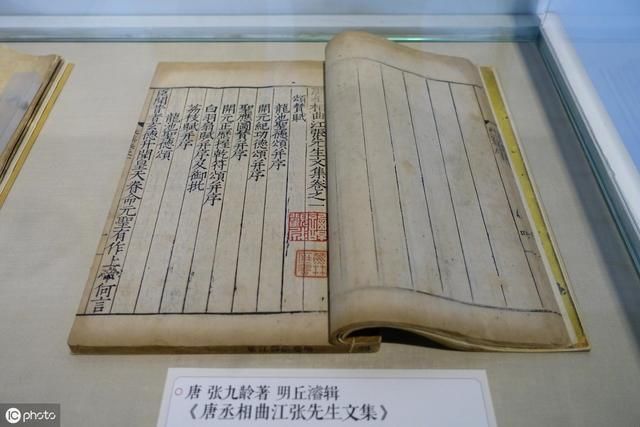 唐丞相曲江張先生文集卷之一
頌賛賦
龍池聖德頌并序
開元紀功德頌并序
聖應圖賛并序
開元正歷握乾符頌并序
白羽扇賦并序又御批
荔枝賦并序
龍池聖德頌
聞昔者皇天眷命元聖有作上帝何言
唐 张九龄著 明丘濬辑
《唐丞相曲江张先生文集》
iC photo